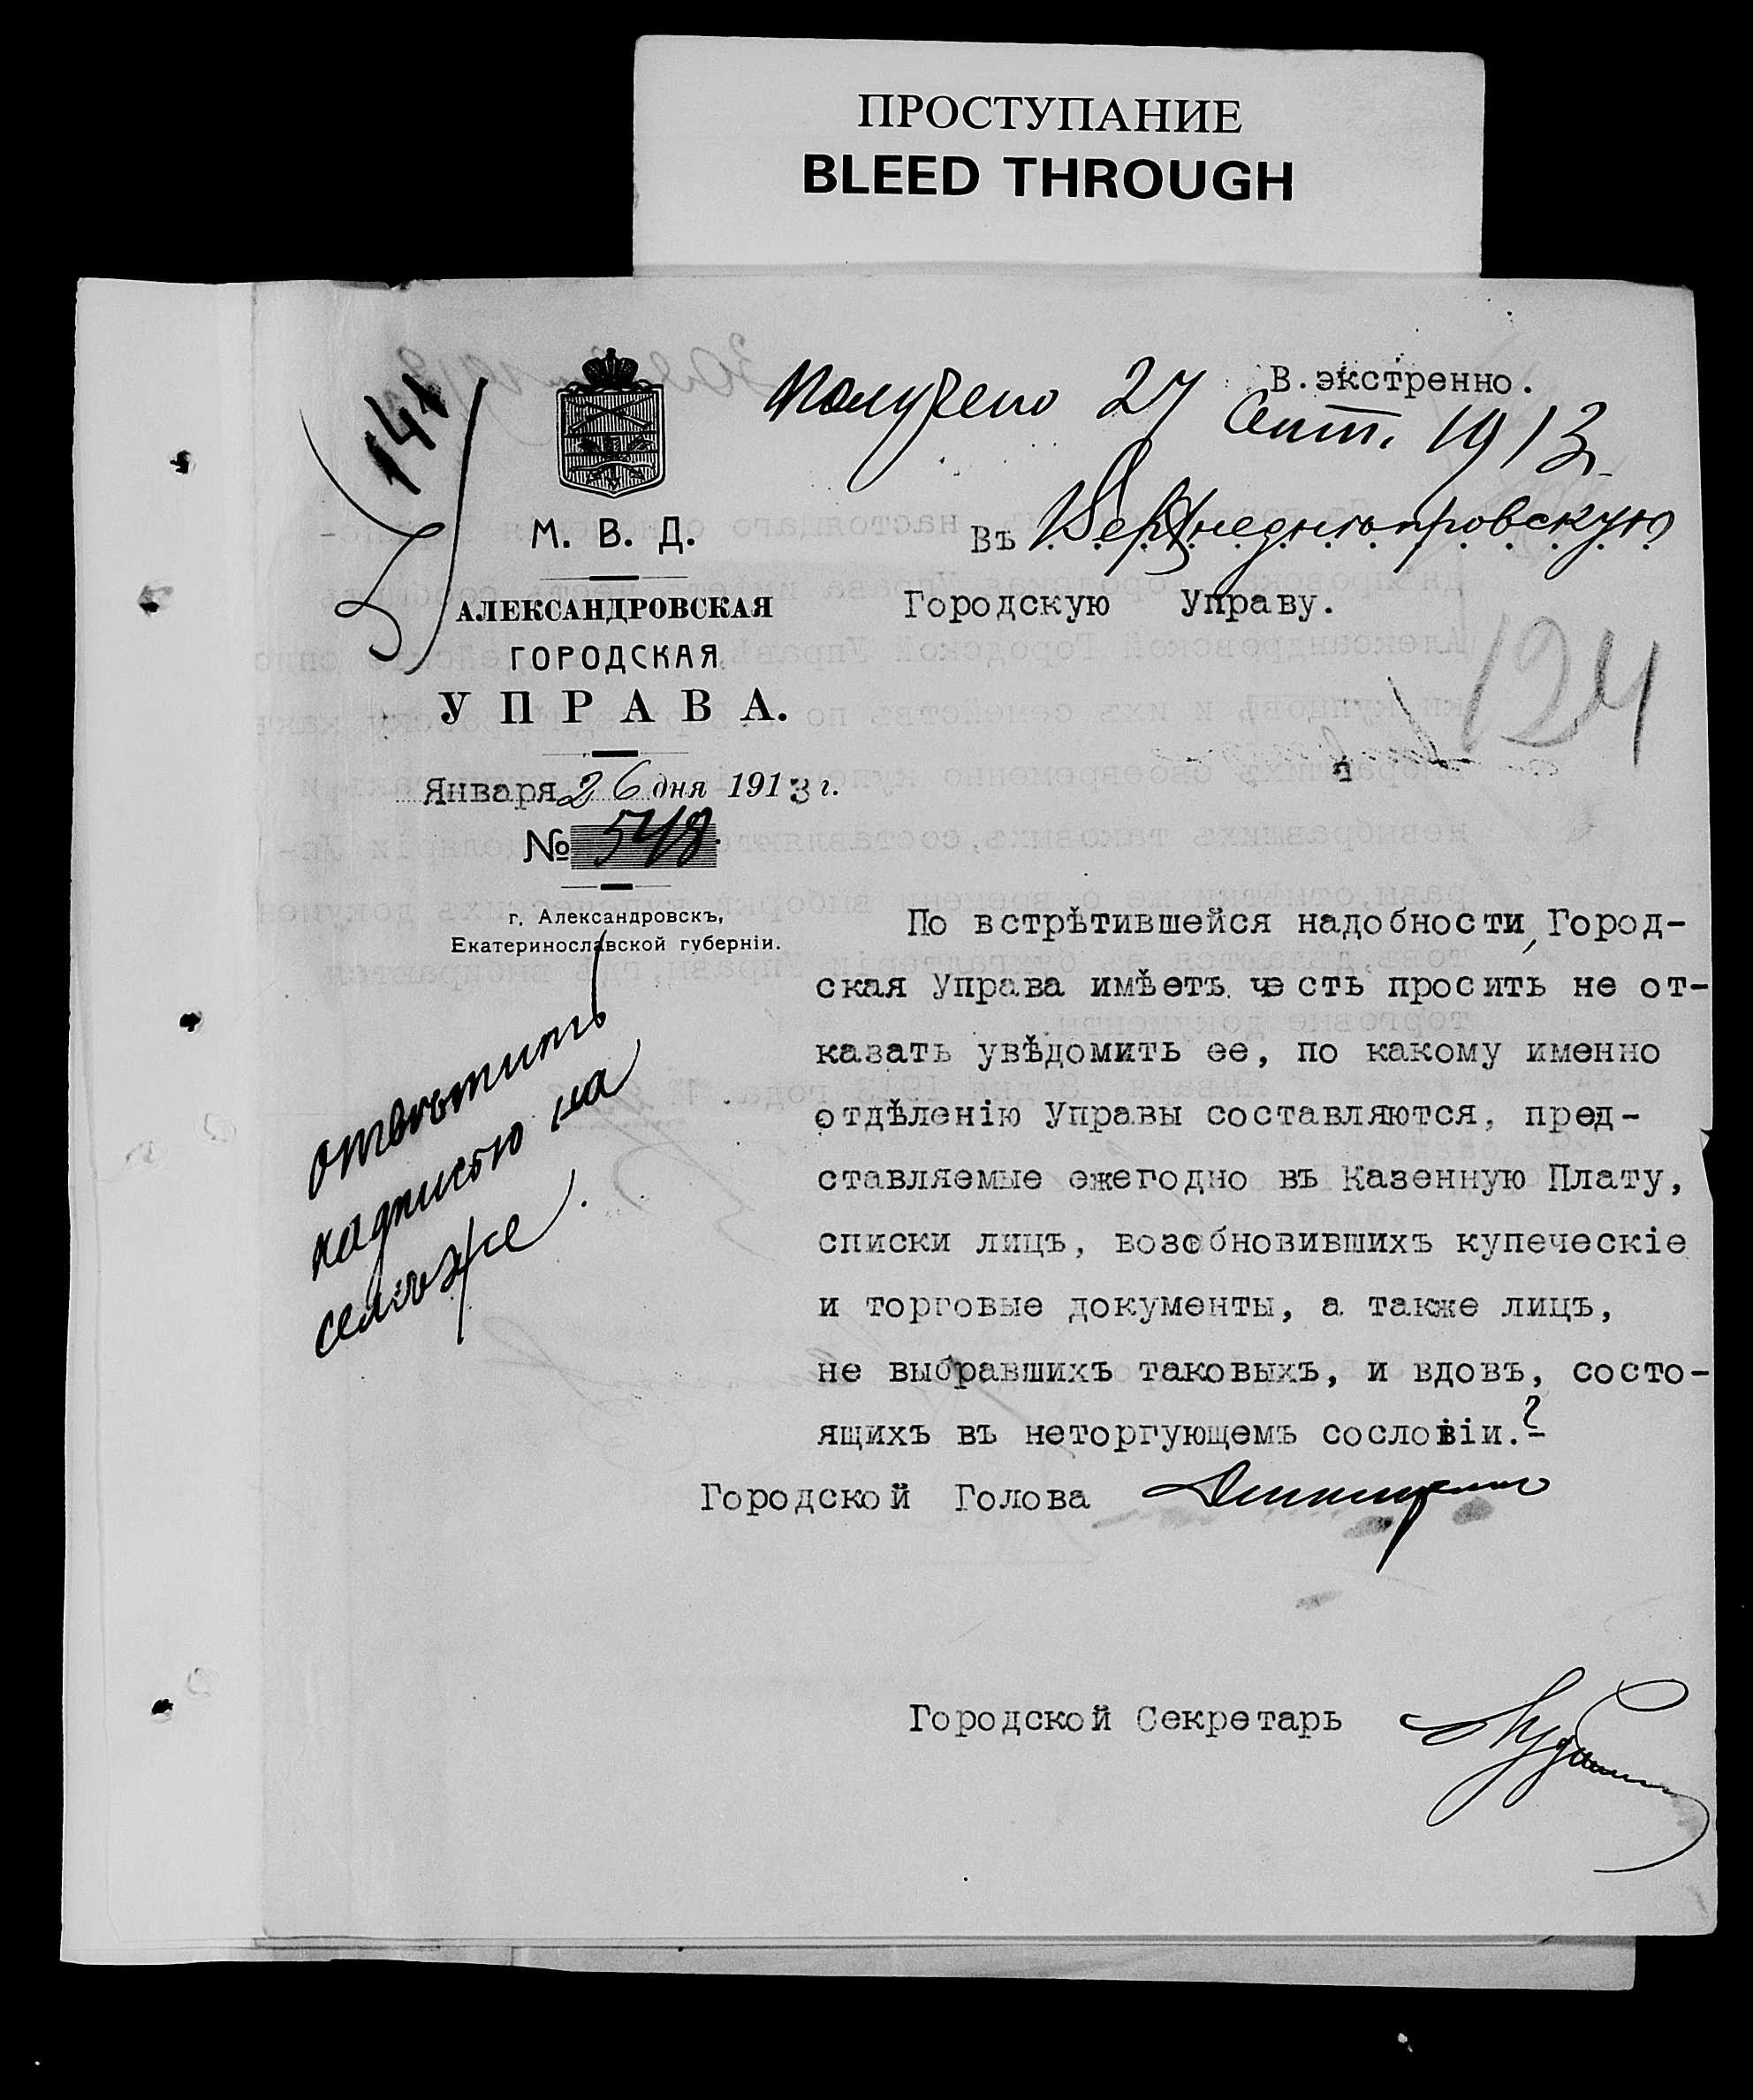 ПРОСТУПАНИЕ
BLEED THROUGH
141
В.экстренно.
Получено 27 Сент. 1913
М. В. Д.
АЛЕКСАНДРОВСКАЯ
ГОРОДСКАЯ
УПРАВА.
Января 26 дня 1913 г.
№ 548.
г. Александровскъ,
Екатеринославской губерніи.
Въ Верхнеднѣпровскую
Городскую Управу.
124
По встрѣтившейся надобности, Город-
ская Управа имѣетъ честь просить не от-
казать увѣдомить ее, по какому именно
отдѣленію Управы составляются, пред-
ставляемые ежегодно въ Казенную Плату,
списки лицъ, возобновившихъ купеческіе
и торговые документы, а также лицъ,
не выбравшихъ таковыхъ, и вдовъ, состо-
ящихъ въ неторгующемъ сословіи.?-
отвѣтить
надписью на
семъ же.
Городской Голова
Городской Секретарь